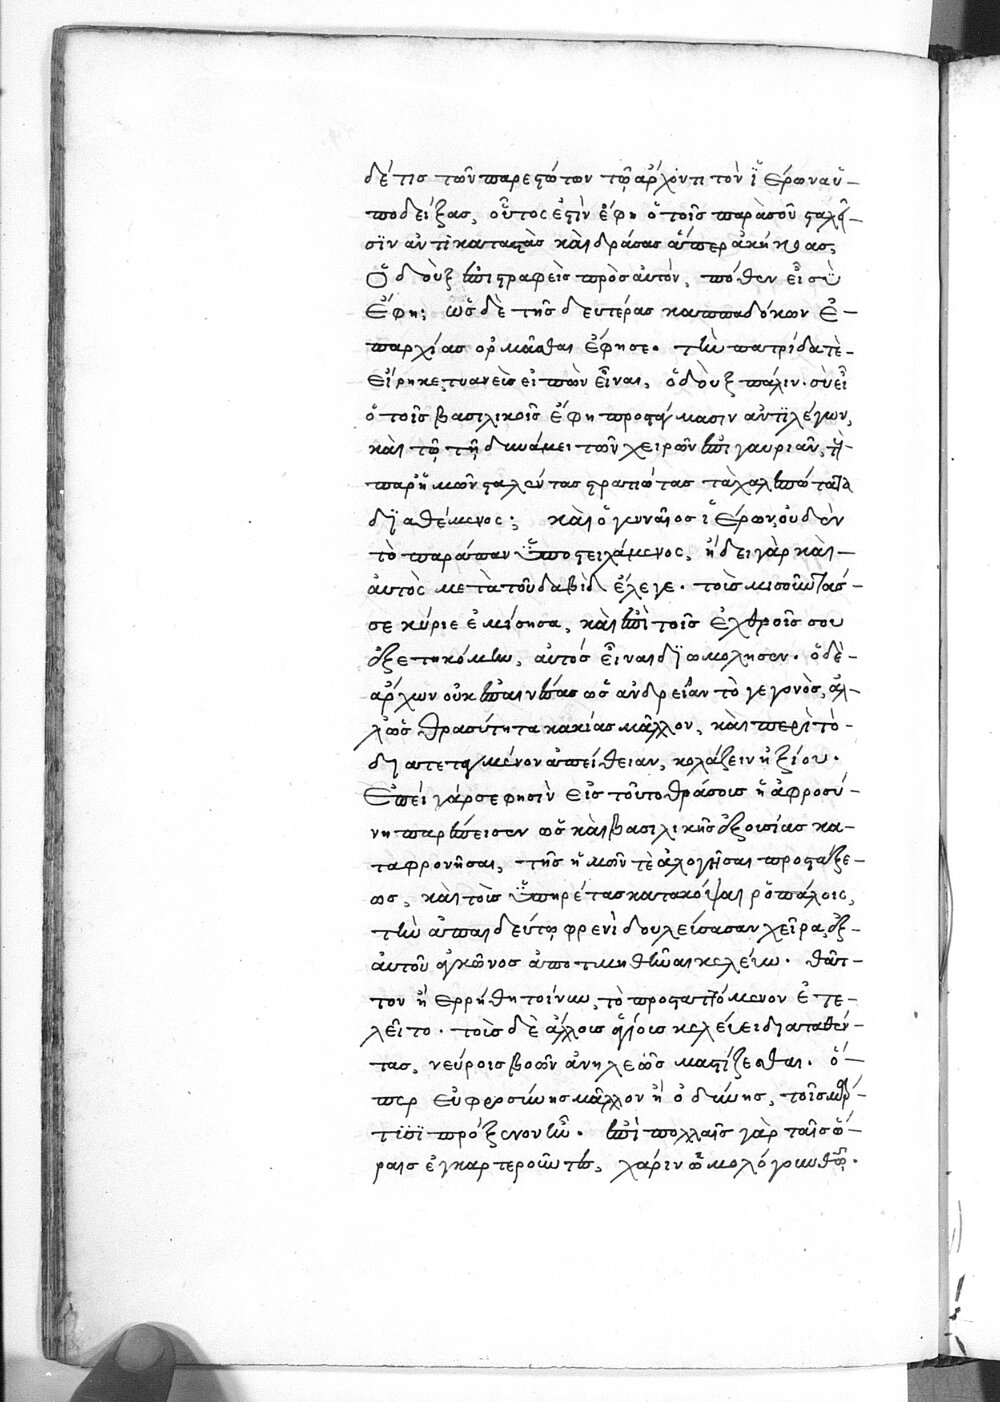 δέ τις τῶν παρεστώτων τῷ ἄρχοντι τὸν ἱέρωνα ὑ-
ποδείξας, οὗτος ἐστὶν ἔφη ὁ τοῖς παρὰ σοῦ σταλεῖ-
σιν ἀντικαταστὰς καὶ δράσας ἅπερ ἀκήκοας,
Ὁ δοὺξ ἐπιστραφεὶς πρὸς αὐτὸν, πόθεν εἶ σὺ
ἔφη; ὡς δὲ τῆς δευτέρας καππαδόκων ἐ-
παρχίας ὁρμᾶσθαι ἔφησε. τὴν πατρίδα τὲ-
εἴρηκε, τυανεὺς εἰπὼν εἶναι, ὁ δοὺξ πάλιν. σὺ εἶ
ὁ τοῖς βασιλικοῖς ἔφη προστάγμασιν ἀντιλέγων,
καὶ τῷ τῇ δυνάμει τῶν χειρῶν ἐπιγαυριᾶν, τοὺς
παρ' ἡμῶν σταλέντας στρατιώτας τὰ χαλεπώτατα
διαθέμενος; καὶ ὁ γενναῖος ἱέρων, οὐδὲν
τὸ παράπαν ὑποστειλάμενος, ᾔδει γὰρ καὶ-
αὐτὸς μετὰ τοῦ δαβὶδ ἔλεγε. τοὺς μισοῦντάς-
σε κύριε ἐμίσησα, καὶ ἐπὶ τοῖς ἐχθροῖς σου
ἐξετηκόμην, αὐτός εἶναι διωμολόγησεν. ὁ δὲ-
ἄρχων οὐκ ἐπαινέσας ὡς ἀνδρείαν τὸ γεγονὸς, ἀλ-
λ' ὡς θρασύτητα κακίας μᾶλλον, καὶ περὶ τὸ-
διατεταγμένον ἀπείθειαν, κολάζειν ἠξίου.
Ἐπεί γάρ σε φησὶν εἰς τοῦτο θράσους ἡ ἀφροσύ-
νη παρέπεισεν ὡς καὶ βασιλικῆς ἐξουσίας κα-
ταφρονῆσαι, τῆς ἡμῶν τὲ ἀλογῆσαι προστάξε-
ως, καὶ τοὺς ὑπηρέτας κατακόψαι ῥοπάλοις,
τὴν ἀπαιδεύτῳ φρενὶ δουλεύσασαν χεῖρα, ἐξ-
αὐτοῦ ἀγκῶνος ἀποτμηθῆναι κελεύω. θᾶτ-
τον ἢ ἐρρήθη τοίνυν, τὸ προσταττόμενον ἐτε-
λεῖτο. τοὺς δὲ ἄλλους ἁγίους κελεύει διαταθέν-
τας, νεύροις βοῶν ἀνηλεῶς μαστίζεσθαι. ὅ-
περ εὐφροσύνης μᾶλλον ἢ ὀδύνης, τοῖς μάρ-
τυσι πρόξενον ἦν. ἐπὶ πολλαῖς γὰρ ταῖς ὥ-
ραις ἐγκαρτεροῦντες, χάριν ὡμολόγουν θεῷ.